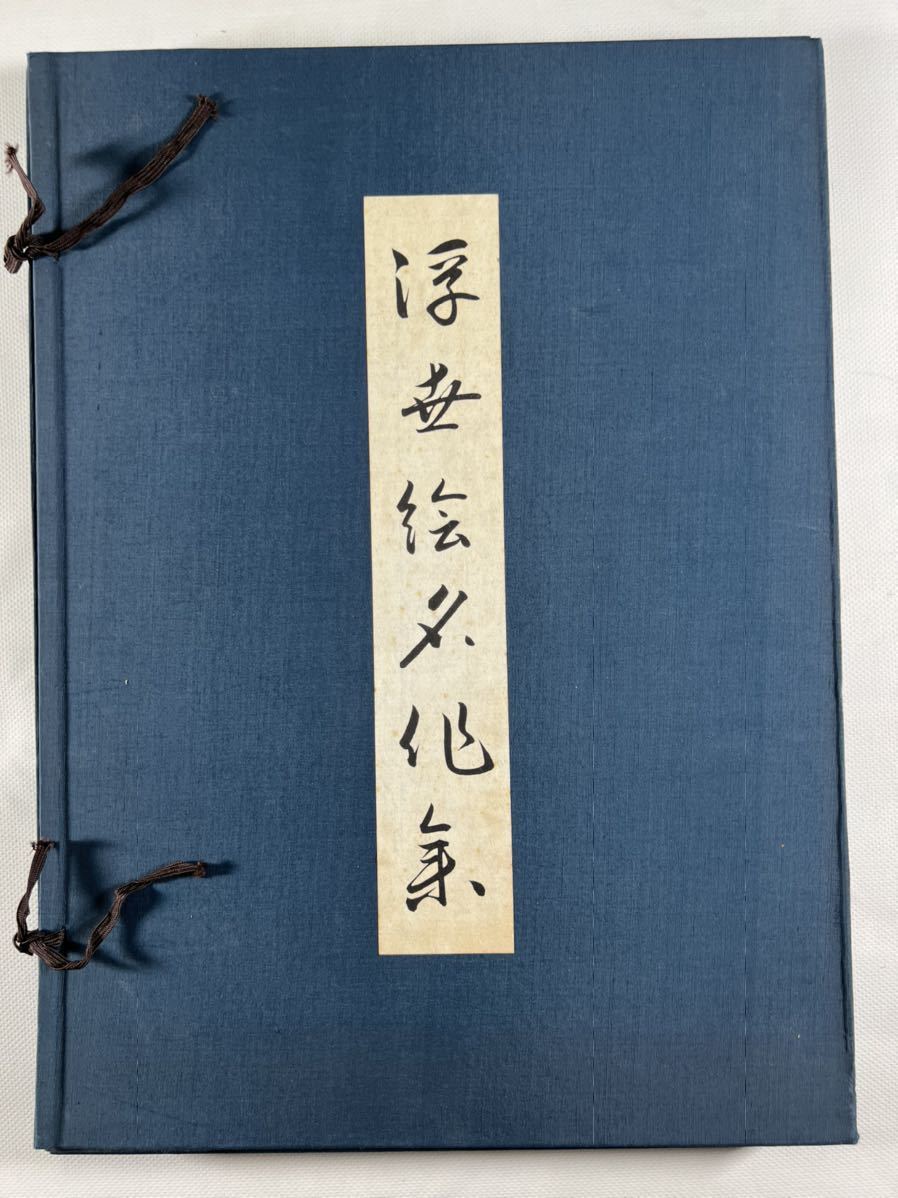 浮世絵名作集